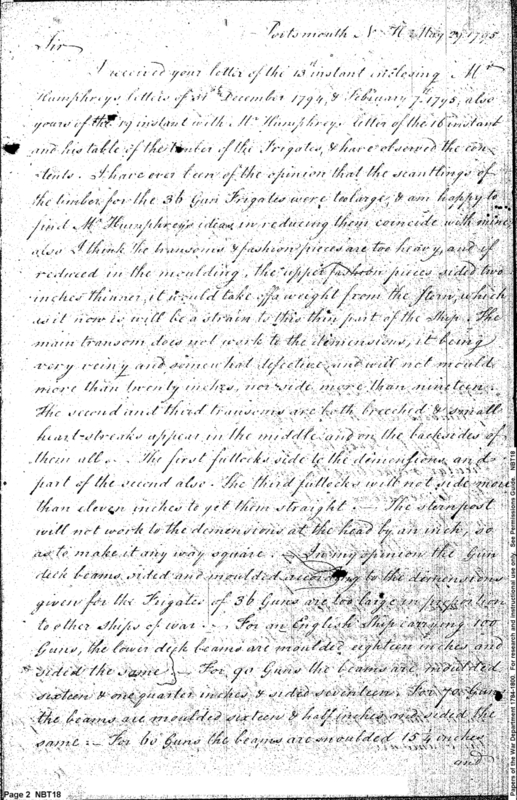 Portsmouth N H May 29 1795
Sir
I received your letter of the 13th instant enclosing Mr
Humphreys letters of 31st December 1794, & February 7th 1795, also
yours of the 19 instant with Mr Humphreys letter of the 16 instant
and his table of the timber of the Frigates, & have observed the con
tents. I have ever been of the opinion that the scantlings of
the timber for the 36 Gun Frigates were too large, & am happy to
find Mr Humphreys ideas, in reducing them coincide with mine
also I think the transoms & fashion pieces are too heavy, and if
reduced in the moulding, the upper fashion pieces sided two
inches thinner, it would take off a weight from the Stern, which
as it now is, will be a strain to this thin part of the Ship. The
main transom does not work to the dimensions, it being
very veiny and somewhat defective, and will not mould
more than twenty inches, nor side more than nineteen.
The second and third transoms are both breeched & small
heart-streaks appear in the middle and on the backsides of
them all. The first futtocks side to the dimensions, and
part of the second also. The third futtocks will not side more
than eleven inches to get them straight. The sternpost
will not work to the demensions at the head by an inch, so
as to make it any way square. In my opinion the Gun
deck beams, sided and moulded according to the demensions
given for the Frigates of 36 Guns are too large in proportion
to other ships of war. For an English Ship carrying 100
Guns, the lower deck beams are moulded eighteen inches and
sided the same. For 90 Guns the beams are moulded
sixteen & one quarter inches, & sided seventeen. For 70 Guns
the beams are moulded sixteen & half inches and sided the
same. For 60 Guns the beams are moulded 15 4 inches
and
Page 2 NBT18
Papers of the War Department 1784-1800. For research and instructional use only. See Permissions Guide. NBT18